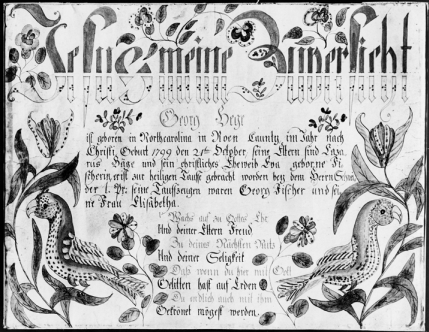 Jesus meine Zuversicht
Georg Hege
ist geboren in Northcarolina in Roen Caunty im Jahr nach
Christi Geburt 1799 den 21st October, seine Eltern sind Laza-
rus Häge und sein christliches Eheweib Eva geborne Fi-
scherin, erst zur heiligen Taufe gebracht worden bey dem Herrn
der l. Pr. seine Taufzeugen waren Georg Fischer und sei-
ne Frau Elisabetha.
Wachs auf zu Gottes Ehr
Und deiner Eltern Freud
Zu deines Nächsten Nutz
Und deiner Seligkeit
Daß wenn du hier mit Gott
Gelitten hast auf Erden
Du endlich auch mit ihm
Gekrönet mögest werden.